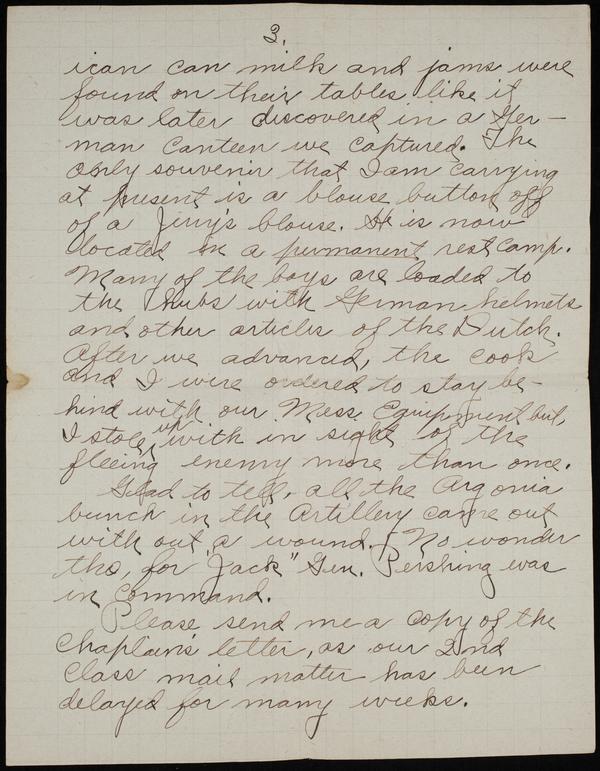 3.
ican can milk and jams were
found on their tables like it
was later discovered in a Ger-
man Canteen we captured. The
only souvenir that I am carrying
at present is a blouse button off
of a Jerry's blouse. He is now
located in a permanent rest camp.
Many of the boys are loaded to
the hubs with German helmets
and other articles of the Dutch.
After we advanced, the cook
and I were ordered to stay be-
hind with our Mess Equipment but,
I stole up with in sight of the
fleeing enemy more than once.
Glad to tell, all the Argonia
bunch in the Artillery came out
with out a wound. No wonder
tho, for "Jack" Gen. Pershing was
in command.
Please send me a copy of the
Chaplain's letter, as our 2nd
Class mail matter has been
delayed for many weeks.